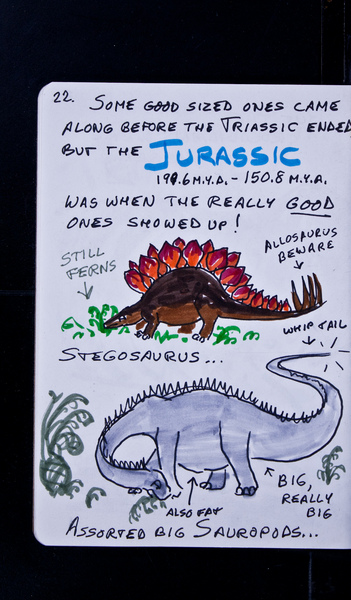 22. SOME GOOD SIZED ONES CAME
ALONG BEFORE THE TRIASSIC ENDED
BUT THE JURASSIC
199.6 M.Y.A. - 150.8 M.Y.A.
WAS WHEN THE REALLY GOOD
ONES SHOWED UP!
ALLOSAURUS
BEWARE
STILL
FERNS
WHIP TAIL
STEGOSAURUS...
BIG,
REALLY
BIG
ALSO FAT
ASSORTED BIG SAUROPODS...